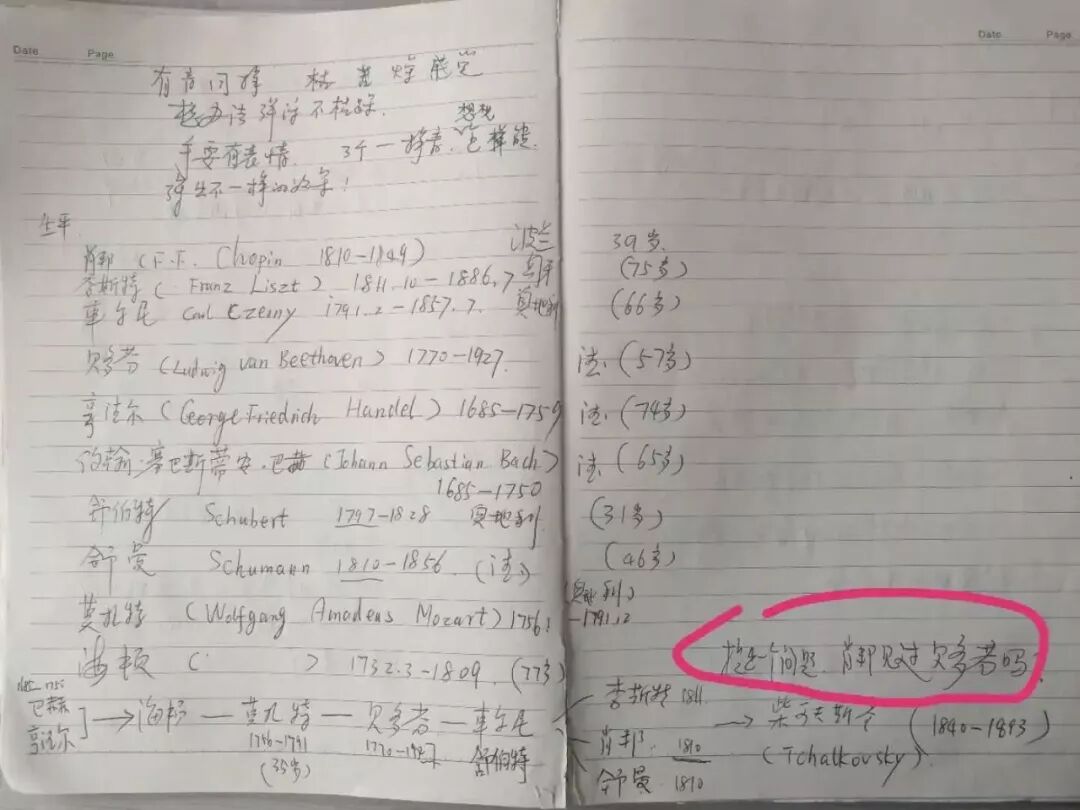 Date Page
Date Page
有音 能
想办法弹
想想
手要有表情. 3个一样音. 怎样能
弹出不一样的效果!
生平
肖邦 (F.F. Chopin 1810-1849) 波兰 39岁.
李斯特 (Franz Liszt) 1811.10-1886.7 (75岁)
車尔尼 Carl Czerny 1791.2-1857.7. 奥地利 (66岁)
贝多芬 (Ludwig van Beethoven) 1770-1927. 法. (57岁)
亨法尔 (George Friedrich Handel) 1685-1759 法. (74岁)
约翰.塞巴斯蒂安.巴赫 (Johann Sebastian Bach) 法. (65岁)
1685-1750
舒伯特 Schubert 1797-1828 奥地利. (31岁)
舒曼 Schumann 1810-1856 (法.) (46岁)
莫扎特 (Wolfgang Amadeus Mozart) 1756.1 -1791.12
海顿 ( ) 1732.3-1809. (77岁)
提一个问题. 肖邦见过贝多芬吗
巴赫
亨法尔
海顿 — 莫扎特 — 贝多芬 — 車尔尼
1756-1791
(35岁)
1770-1927
舒伯特
李斯特 1811.
肖邦. 1810
舒曼 1810
柴可夫斯 (1840-1893)
(Tchalkovsky)